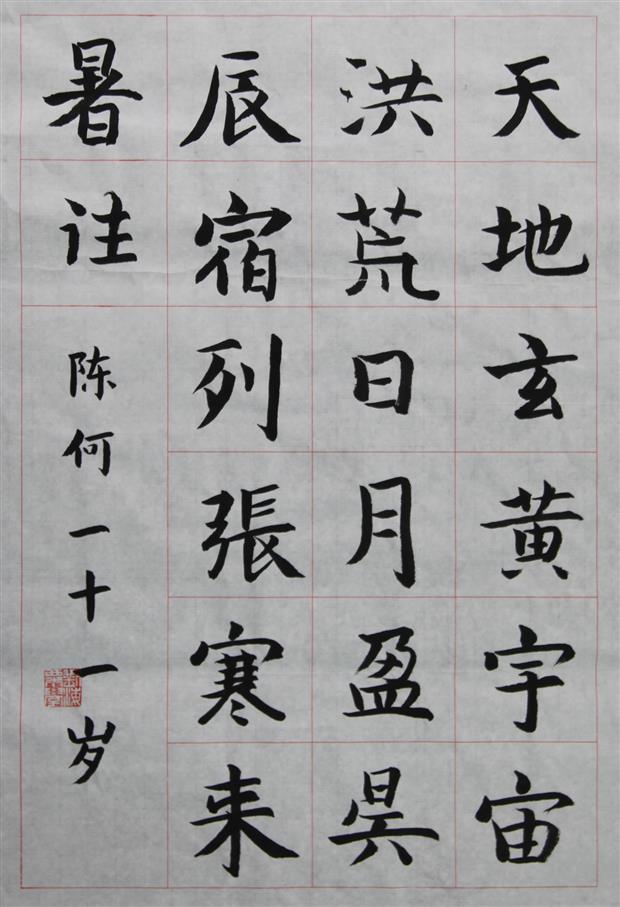 天地玄黄宇宙
洪荒日月盈昃
辰宿列張寒来
暑往
陈何一十一岁